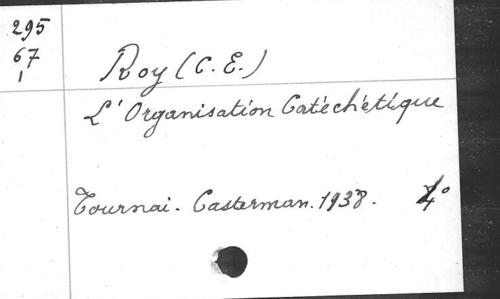 295
67
1
Roy (C. E.)
L'Organisation Catéchétique
Tournai. Casterman. 1938. 4°